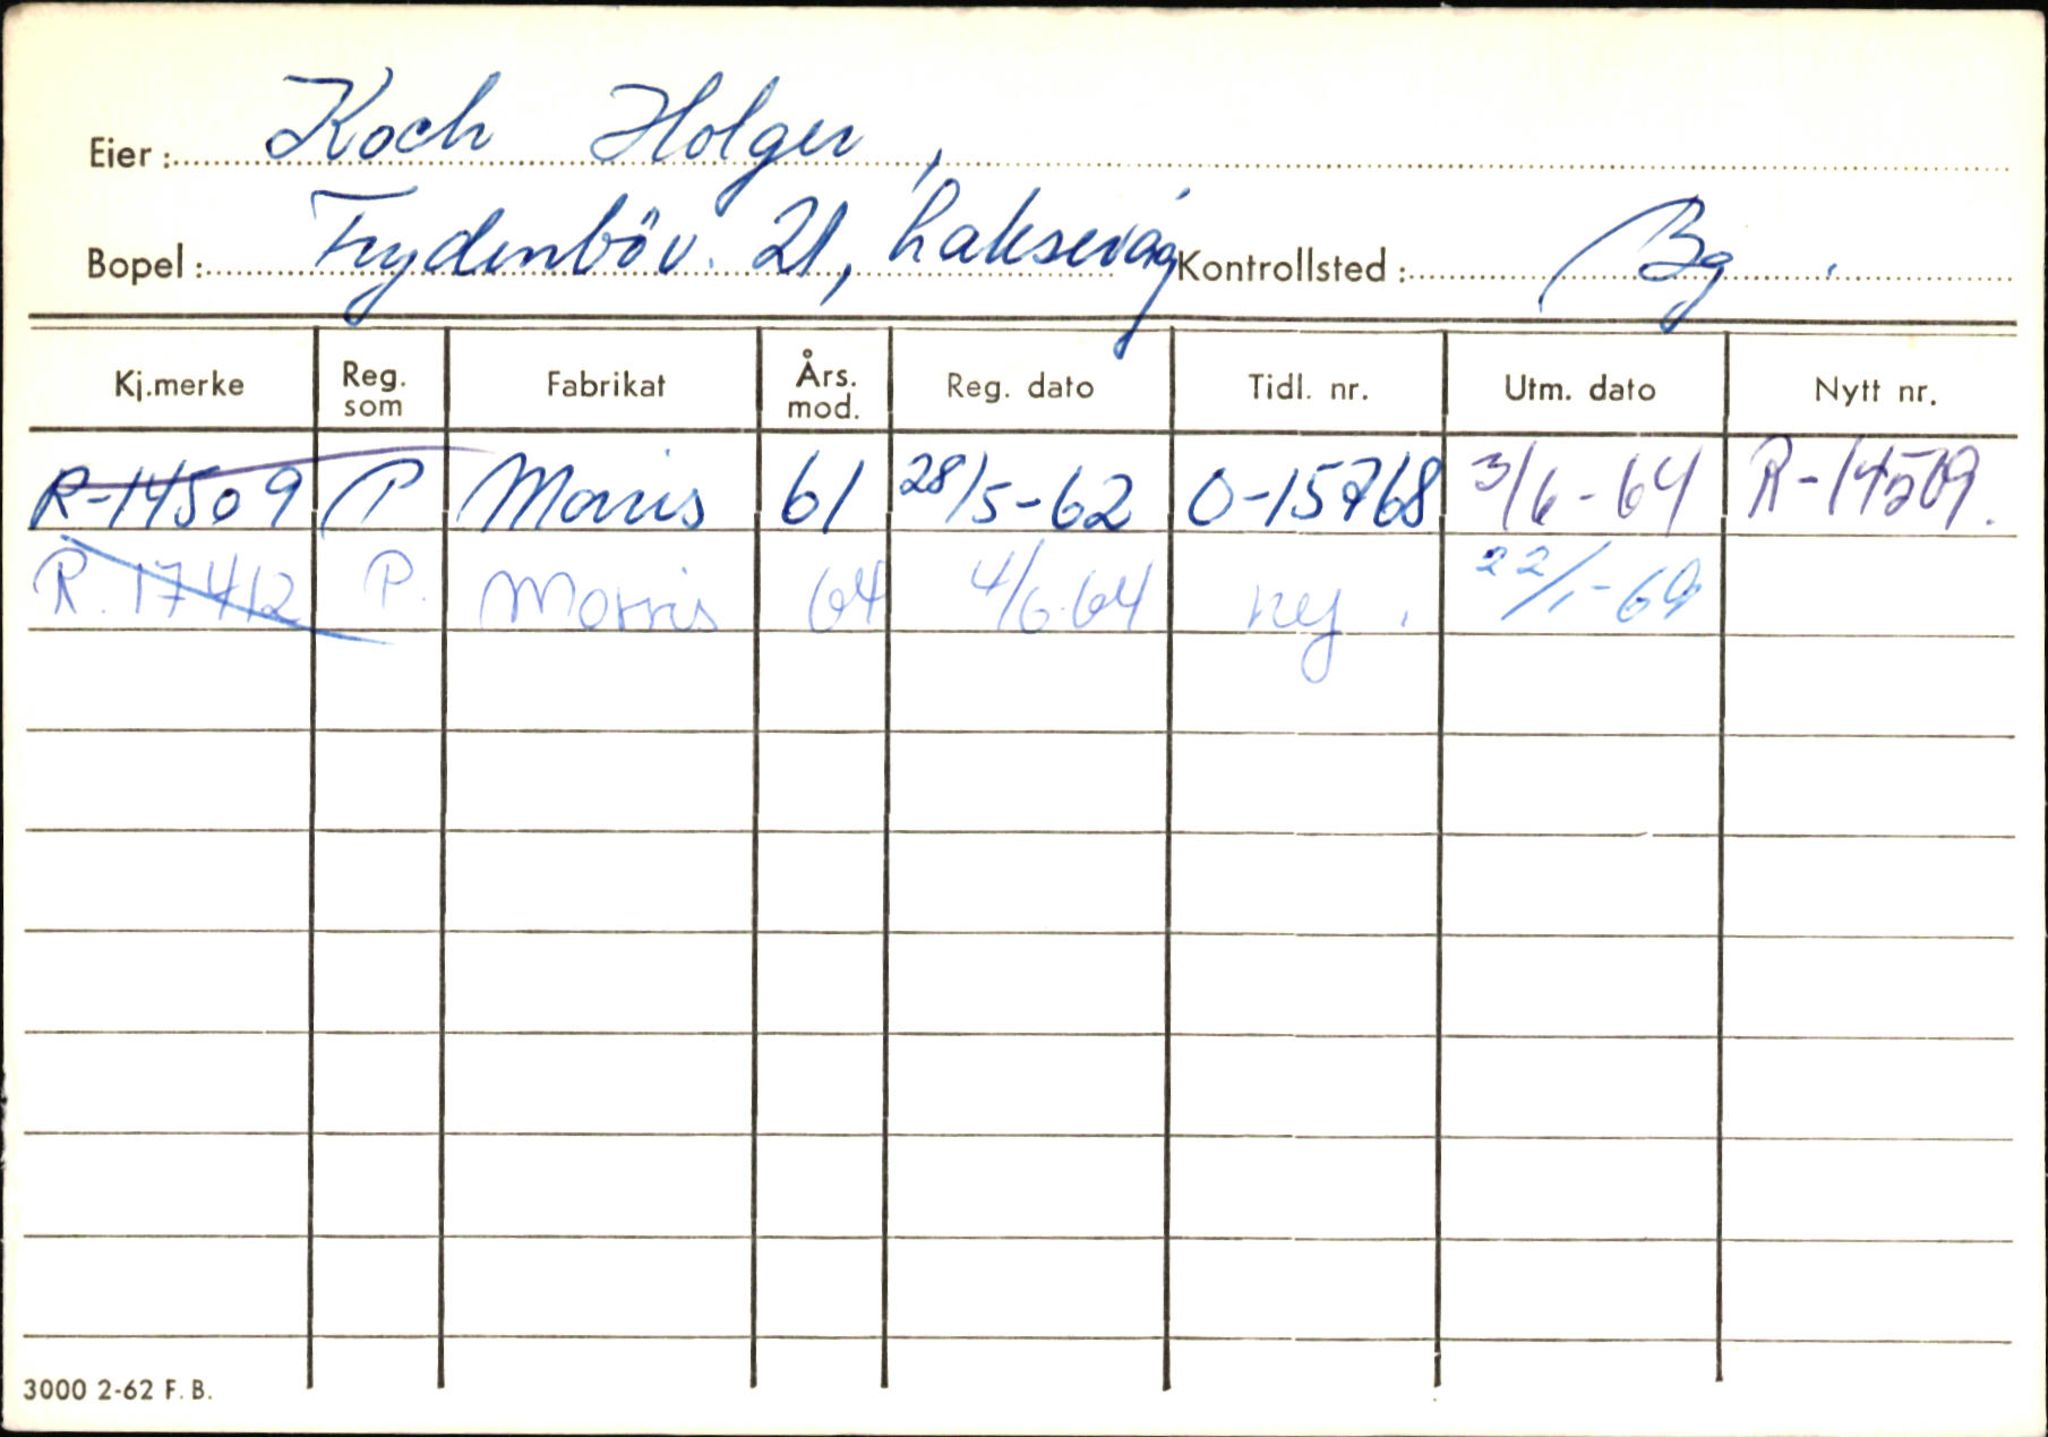 Eier: Koch Holger,
Bopel: Frydenböv. 21, Laksevåg Kontrollsted: Bg.
Kj.merke Reg. som Fabrikat Års. mod. Reg. dato Tidl. nr. Utm. dato Nytt nr.
R-14509 P Morris 61 28/5-62 O-15768 3/6-64 R-14509.
R.17412 P. Morris 64 4/6-64 ny. 22/1-69
3000 2-62 F.B.